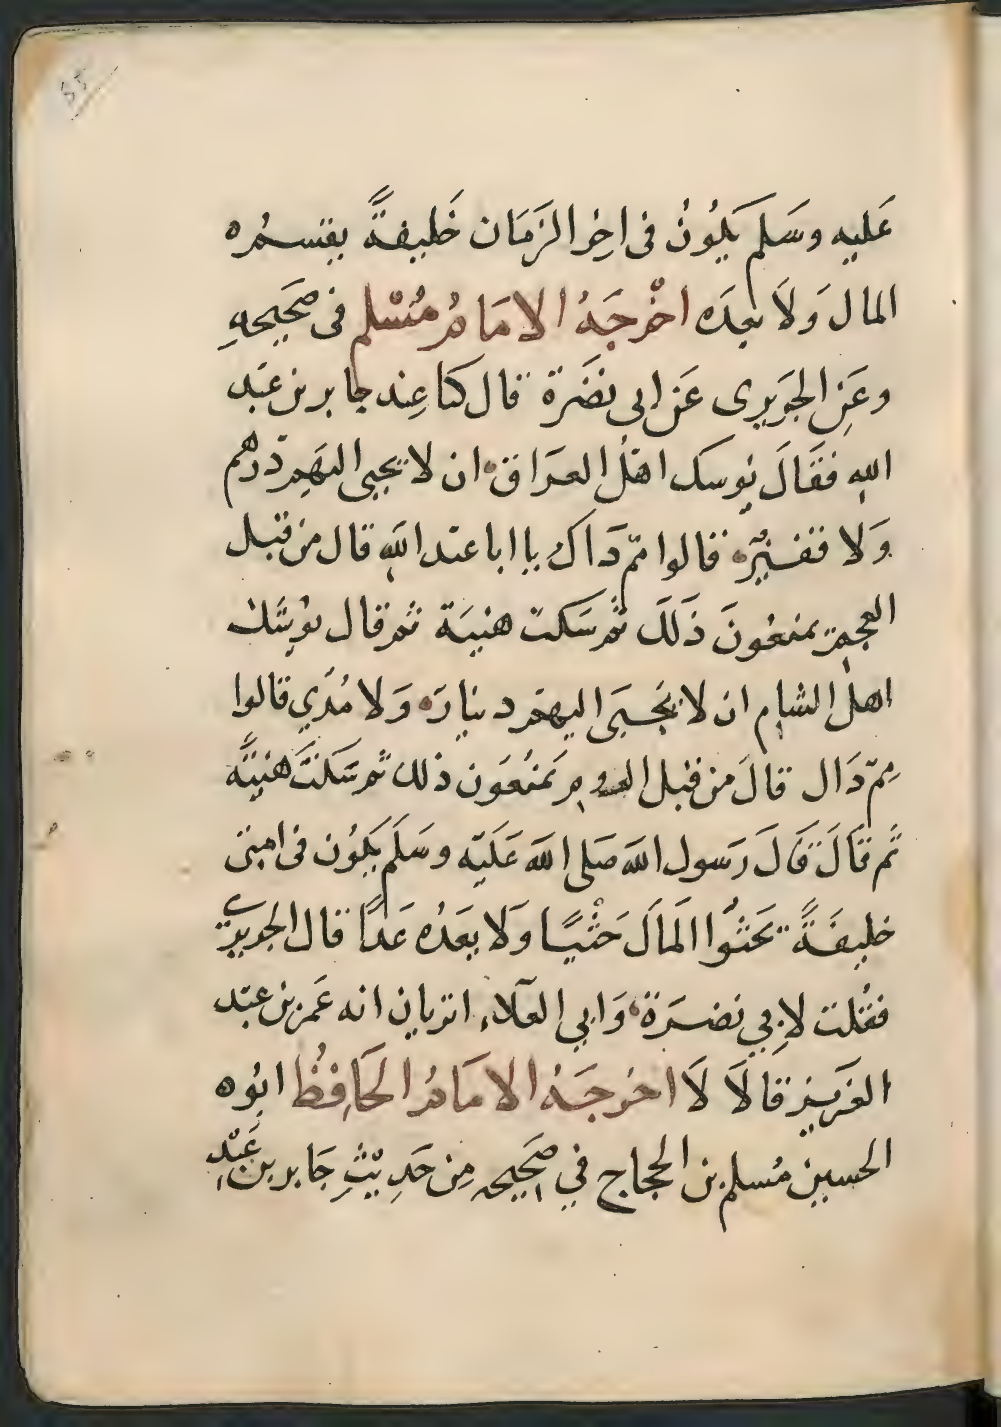 عَليه وسَلم يَكُونُ فى اخِر الزَمَان خَليفةً يقسم
المال وَلاَ يعدَه اخْرجَهُ الامَامُ مُسْلم فى صَحيحهِ
وعَنِ الجَريرى عَن ابى نضَرة قال كنا عِند جابر بن عَبد
الله فقَالَ يُوسك اهلُ العرَاق ان لا يجبى اليهم درهم
وَلا قفيز قالوا ممّ ذَاك يا ابا عبد الله قال من قبل
العجم يمنعُونَ ذَلَك ثم سَكت هنيَة ثم قال يوشك
اهلُ الشام ان لا يجبَى اليهم دينار وَلا مُدْي قالوا
مِمّ ذَال قالَ من قبل الروم يَمنعُون ذلك ثم سَكتَ هنيَّه
ثم قالَ قَالَ رَسول الله صَلى الله عَليه وسَلم يكُون فى امتى
خليفَةً يَحثُوا المَالَ حَثْيًا وَلا يعَدُه عَدًا قال الجريرى
فقُلت لابي نضرَة وَابي العَلاء اتريان انه عَمر بن عبد
العَزيز قالاَ لَا اخرجَهُ الامَامُ الحَافِظُ ابُو
الحسين مُسلم بن الحجاج في صَحيحه مِن حَدِيْثِ جَابر بن عَبْدِ